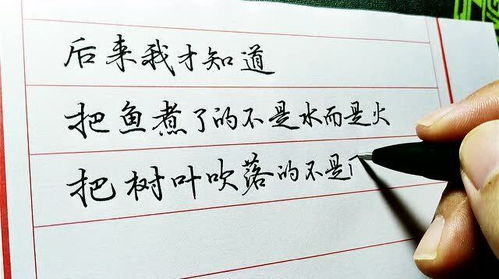 后来我才知道
把鱼煮了的不是水而是火
把树叶吹落的不是